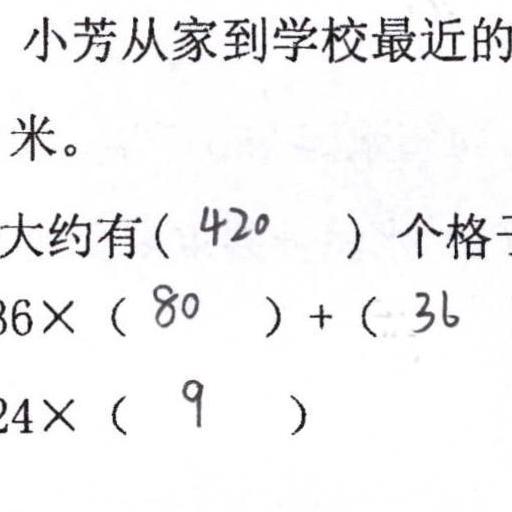 小芳从家到学校最近的
米。
大约有( 420 ) 个格子
36×( 80 )+( 36
24×( 9 )